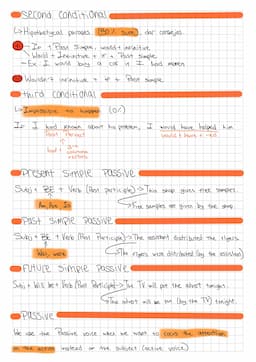 second conditional
↳ Hypothetycal parases (50% sure), dar consejos.
① - If + Past Simple, would + infinitive
- Would + infinitive + if + Past simple
- Ex: I would buy a car if I had money
② Wouldn't + infinitive + if + Past simple.
third conditional
↳ Impossible to happen (0%)
If I had known about his problem, I would have helped him
Past Perfect
would + have + verb
had +
present simple passive
Subj + BE + Verb (Past participle) -> This shop gives free samples.
Am, Are, Is
-> Free samples are given by the shop
past simple passive
Subj + BE + Verb (Past Participle) -> The assistant distributed the flyers
Was, were
-> The flyers were distributed (by the assistant)
future simple passive
Subj + Will be + Verb (Past Participle) -> The TV will put the advert tonight.
-> The advert will be put (by the TV) tonight.
passive
We use the Passive voice when we want to focus the attention
on the action instead of the subject (active voice)